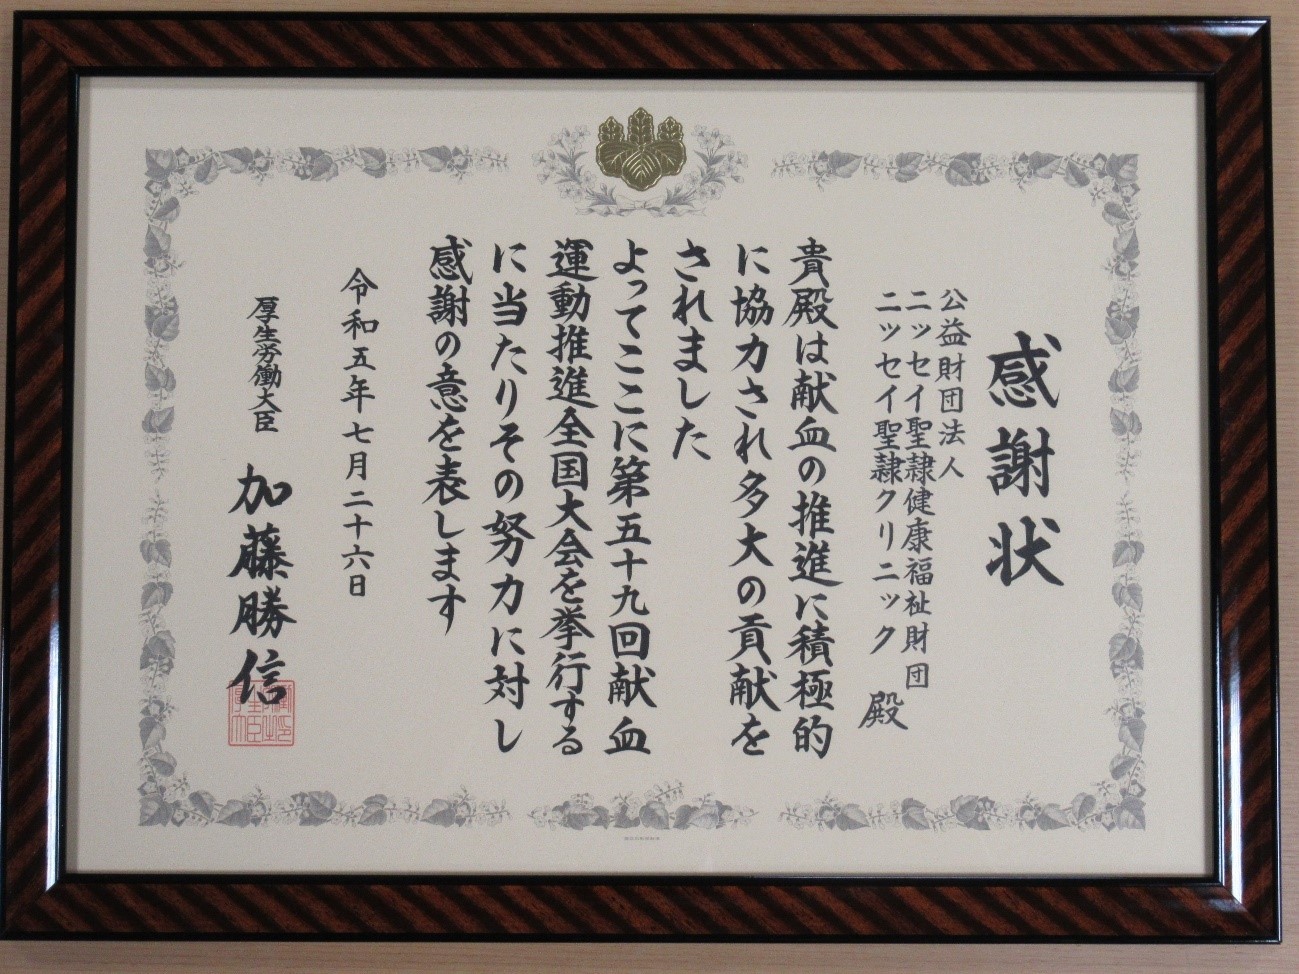 感謝状
公益財団法人
ニッセイ聖隷健康福祉財団
ニッセイ聖隷クリニック 殿
貴殿は献血の推進に積極的
に協力され多大の貢献を
されました
よってここに第五十九回献血
運動推進全国大会を挙行する
に当たりその努力に対し
感謝の意を表します
令和五年七月二十六日
厚生労働大臣 加藤勝信